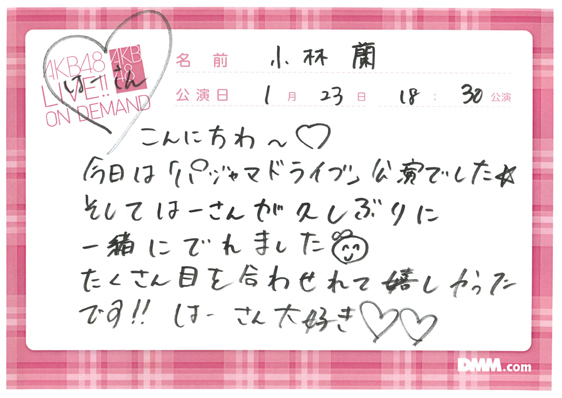 AKB48
LIVE!!
ON DEMAND
AKB
48
はーさん
名前 小林 蘭
公演日 1月 23日 18:30公演
こんにちわ〜♡
今日は「パジャマドライブ」公演でした☆
そしてはーさんが久しぶりに
一緒にでれました
たくさん目を合わせれて嬉しかった
です!! はーさん大好き♡♡
DMM.com